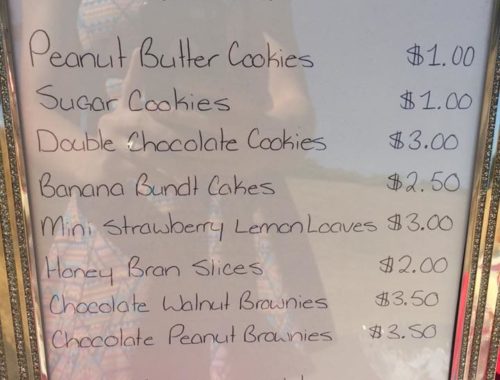 Peanut Butter Cookies $1.00
Sugar Cookies $1.00
Double Chocolate Cookies $3.00
Banana Bundt Cakes $2.50
Mini Strawberry Lemon Loaves $3.00
Honey Bran Slices $2.00
Chocolate Walnut Brownies $3.50
Chocolate Peanut Brownies $3.50